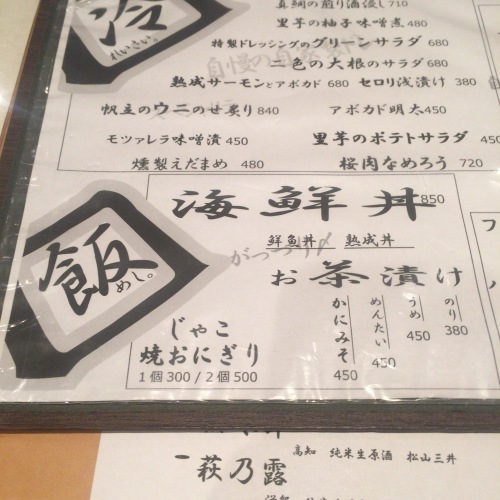 冷
れいさい。
真鯛の煎り酒浸し 710
里芋の柚子味噌煮 480
特製ドレッシングのグリーンサラダ 680
二色の大根のサラダ
熟成サーモンとアボカド 680 セロリ浅漬け 380
帆立のウニのせ炙り 840 アボカド明太 450
モツァレラ味噌漬 450 里芋のポテトサラダ
燻製えだまめ 480 桜肉なめろう 720
飯
めし。
海鮮丼 850
鮮魚丼 熟成丼
がっつり〆
お茶漬け
のり 380
うめ 450
めんたい 450
かにみそ 450
じゃこ
焼おにぎり
1個300/2個500
高知 純米生原酒 松山三井
萩乃露